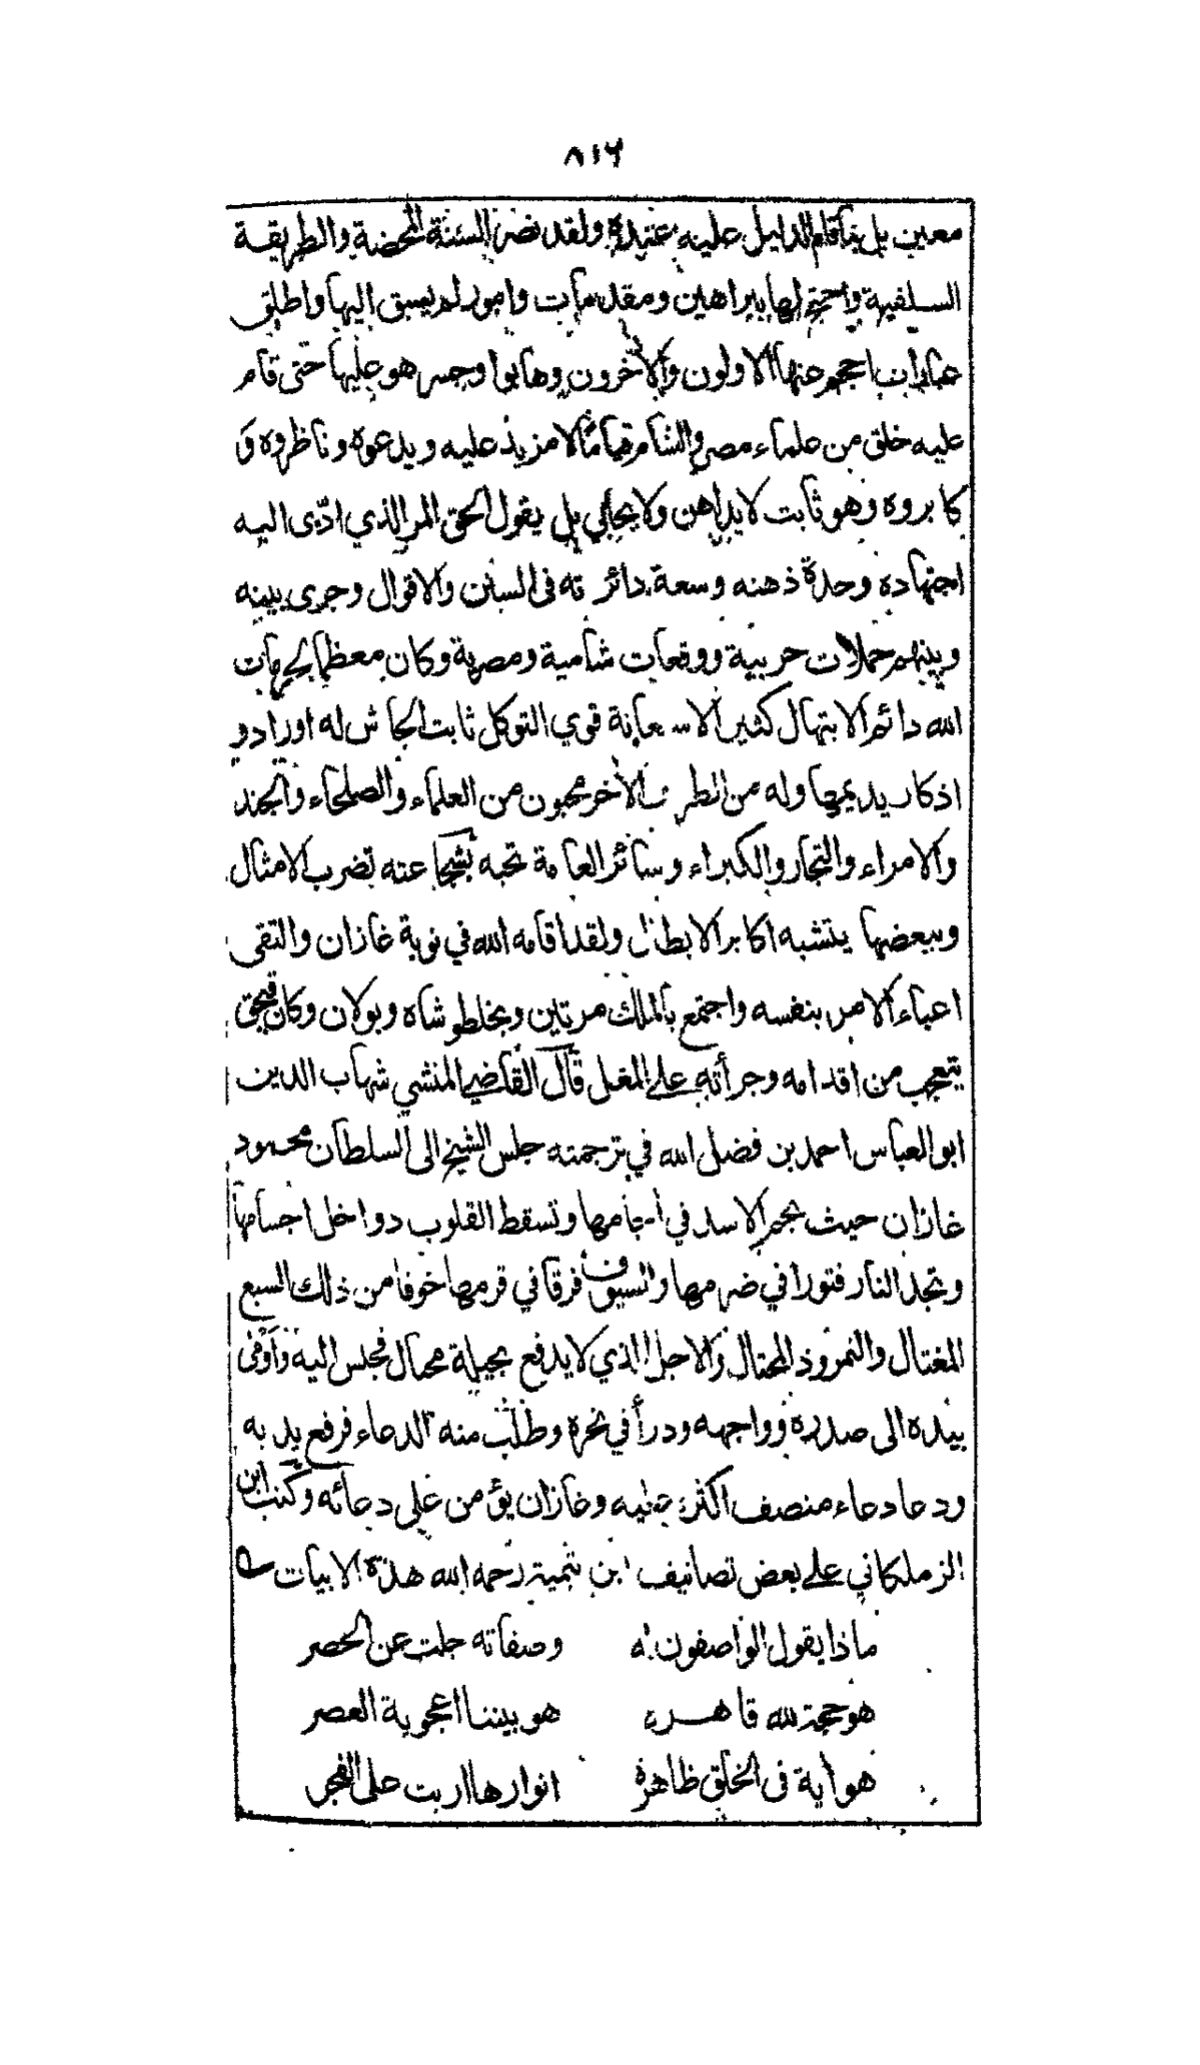 ٨١٦
معين بل بما قام الدليل عليه عنده ولقد نصر السنة المحضة والطريقة
السلفية واحتج لها ببراهين ومقدمات وامور لم يسبق اليها واطلق
عبارات احجم عنها الاولون والآخرون وهابوا وجسر هو عليها حتى قام
عليه خلق من علماء مصر والشام قياما لا مزيد عليه وبدعوه وناظروه و
كابروه وهو ثابت لا يداهن ولا يحابي بل يقول الحق المر الذي ادّى اليه
اجتهاده وحدة ذهنه وسعة دائرته فى السنن والاقوال وجرى بينه
وبينهم حملات حربية ووقعات شامية ومصرية وكان معظما لحرمات
الله دائم الابتهال كثير الاستعانة قوي التوكل ثابت الجاش له اوراد و
اذكار يديمها وله من الطرف الآخر محبون من العلماء والصلحاء والجند
والامراء والتجار والكبراء وسائر العامة تحبه بشجاعته تضرب الامثال
وببعضها يتشبه اكابر الابطال ولقد اقامه الله في نوبة غازان والتقى
اعباء الامر بنفسه واجتمع بالملك مرتين وبخلطو شاه وبولان وكان قبجق
يتعجب من اقدامه وجرأته على المغل قال القاضي المنشي شهاب الدين
ابو العباس احمد بن فضل الله في ترجمته جلس الشيخ الى السلطان محمود
غازان حيث تجم الاسد في آجامها وتسقط القلوب دواخل اجسامها
وتجد النار فتورا في ضرمها والسيوف فرقا في قرمها خوفا من ذلك السبع
المغتال والنمروذ المحتال والاجل الذي لا يدفع بحيلة محتال فجلس اليه وأومى
بيده الى صدره وواجهه ودرأ في نحره وطلب منه الدعاء فرفع يديه
ودعا دعاء منصف اكثره عليه وغازان يؤمن على دعائه وكتب ابن
الزملكاني على بعض تصانيف ابن تيمية رحمه الله هذه الابيات
ماذا يقول الواصفون له وصفاته جلت عن الحصر
هو حجة لله قاهرة هو بيننا اعجوبة العصر
هو آية فى الخلق ظاهرة انوارها اربت على الفجر